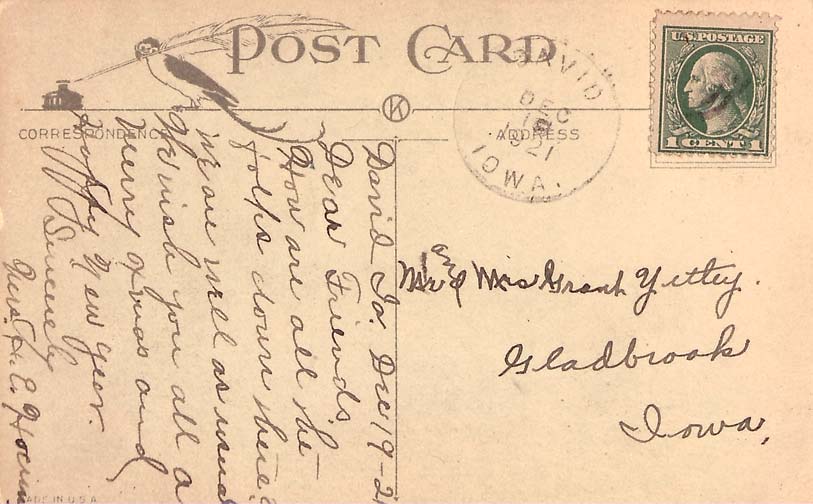 POST CARD
CORRESPONDENCE
ADDRESS
DAVID
DEC
19
1921
IOWA.
U.S. POSTAGE
1 CENT 1
David Ia. Dec 19-21
Dear Friends.
How are all the
folks down there?
we are well as usual
We wish you all a
Merry Xmas and
Happy New Year.
Sincerely
Mrs. E.
Mr & Mrs Grant Yetley.
Gladbrook
Iowa,
K
MADE IN U.S.A